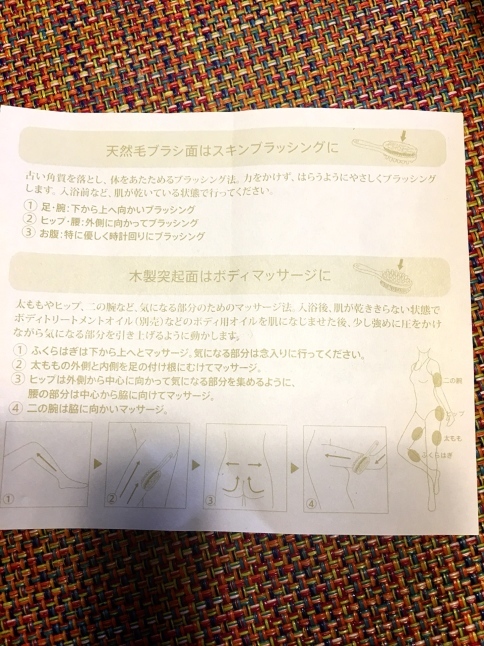 天然毛ブラシ面はスキンブラッシングに
古い角質を落とし、体をあたためるブラッシング法。力をかけず、はらうようにやさしくブラッシング
します。入浴前など、肌が乾いている状態で行ってください。
① 足・腕:下から上へ向かいブラッシング
② ヒップ・腰:外側に向かってブラッシング
③ お腹:特に優しく時計回りにブラッシング
木製突起面はボディマッサージに
太ももやヒップ、二の腕など、気になる部分のためのマッサージ法。入浴後、肌が乾ききらない状態で
ボディトリートメントオイル(別売)などのボディ用オイルを肌になじませた後、少し強めに圧をかけ
ながら気になる部分を引き上げるように動かします。
① ふくらはぎは下から上へとマッサージ。気になる部分は念入りに行ってください。
② 太ももの外側と内側を足の付け根にむけてマッサージ。
③ ヒップは外側から中心に向かって気になる部分を集めるように、
腰の部分は中心から脇に向けてマッサージ。
④ 二の腕は脇に向かいマッサージ。
二の腕
ヒップ
太もも
ふくらはぎ
①
②
③
④